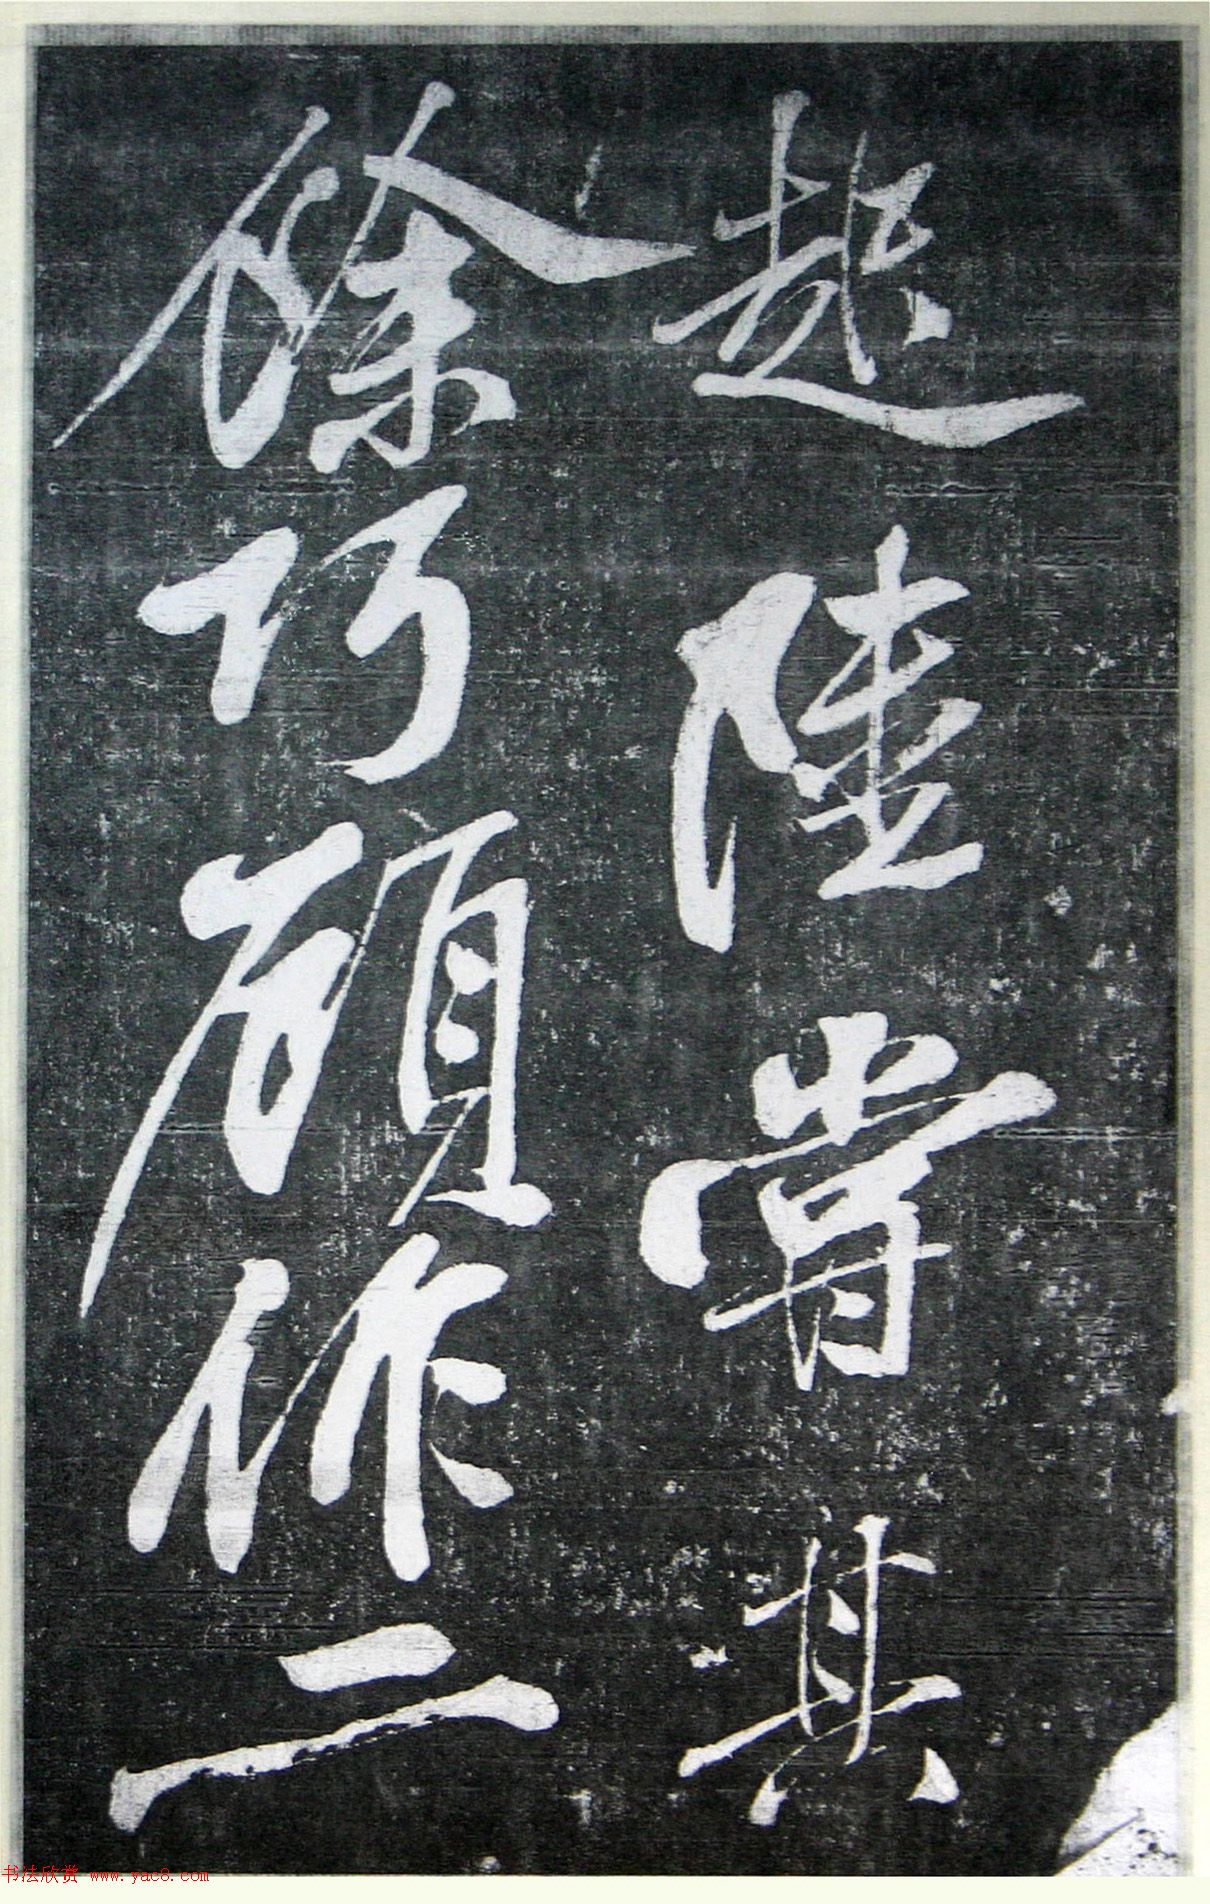 越陸嘗其
餘巧顧作二
书法欣赏 www.yac8.com